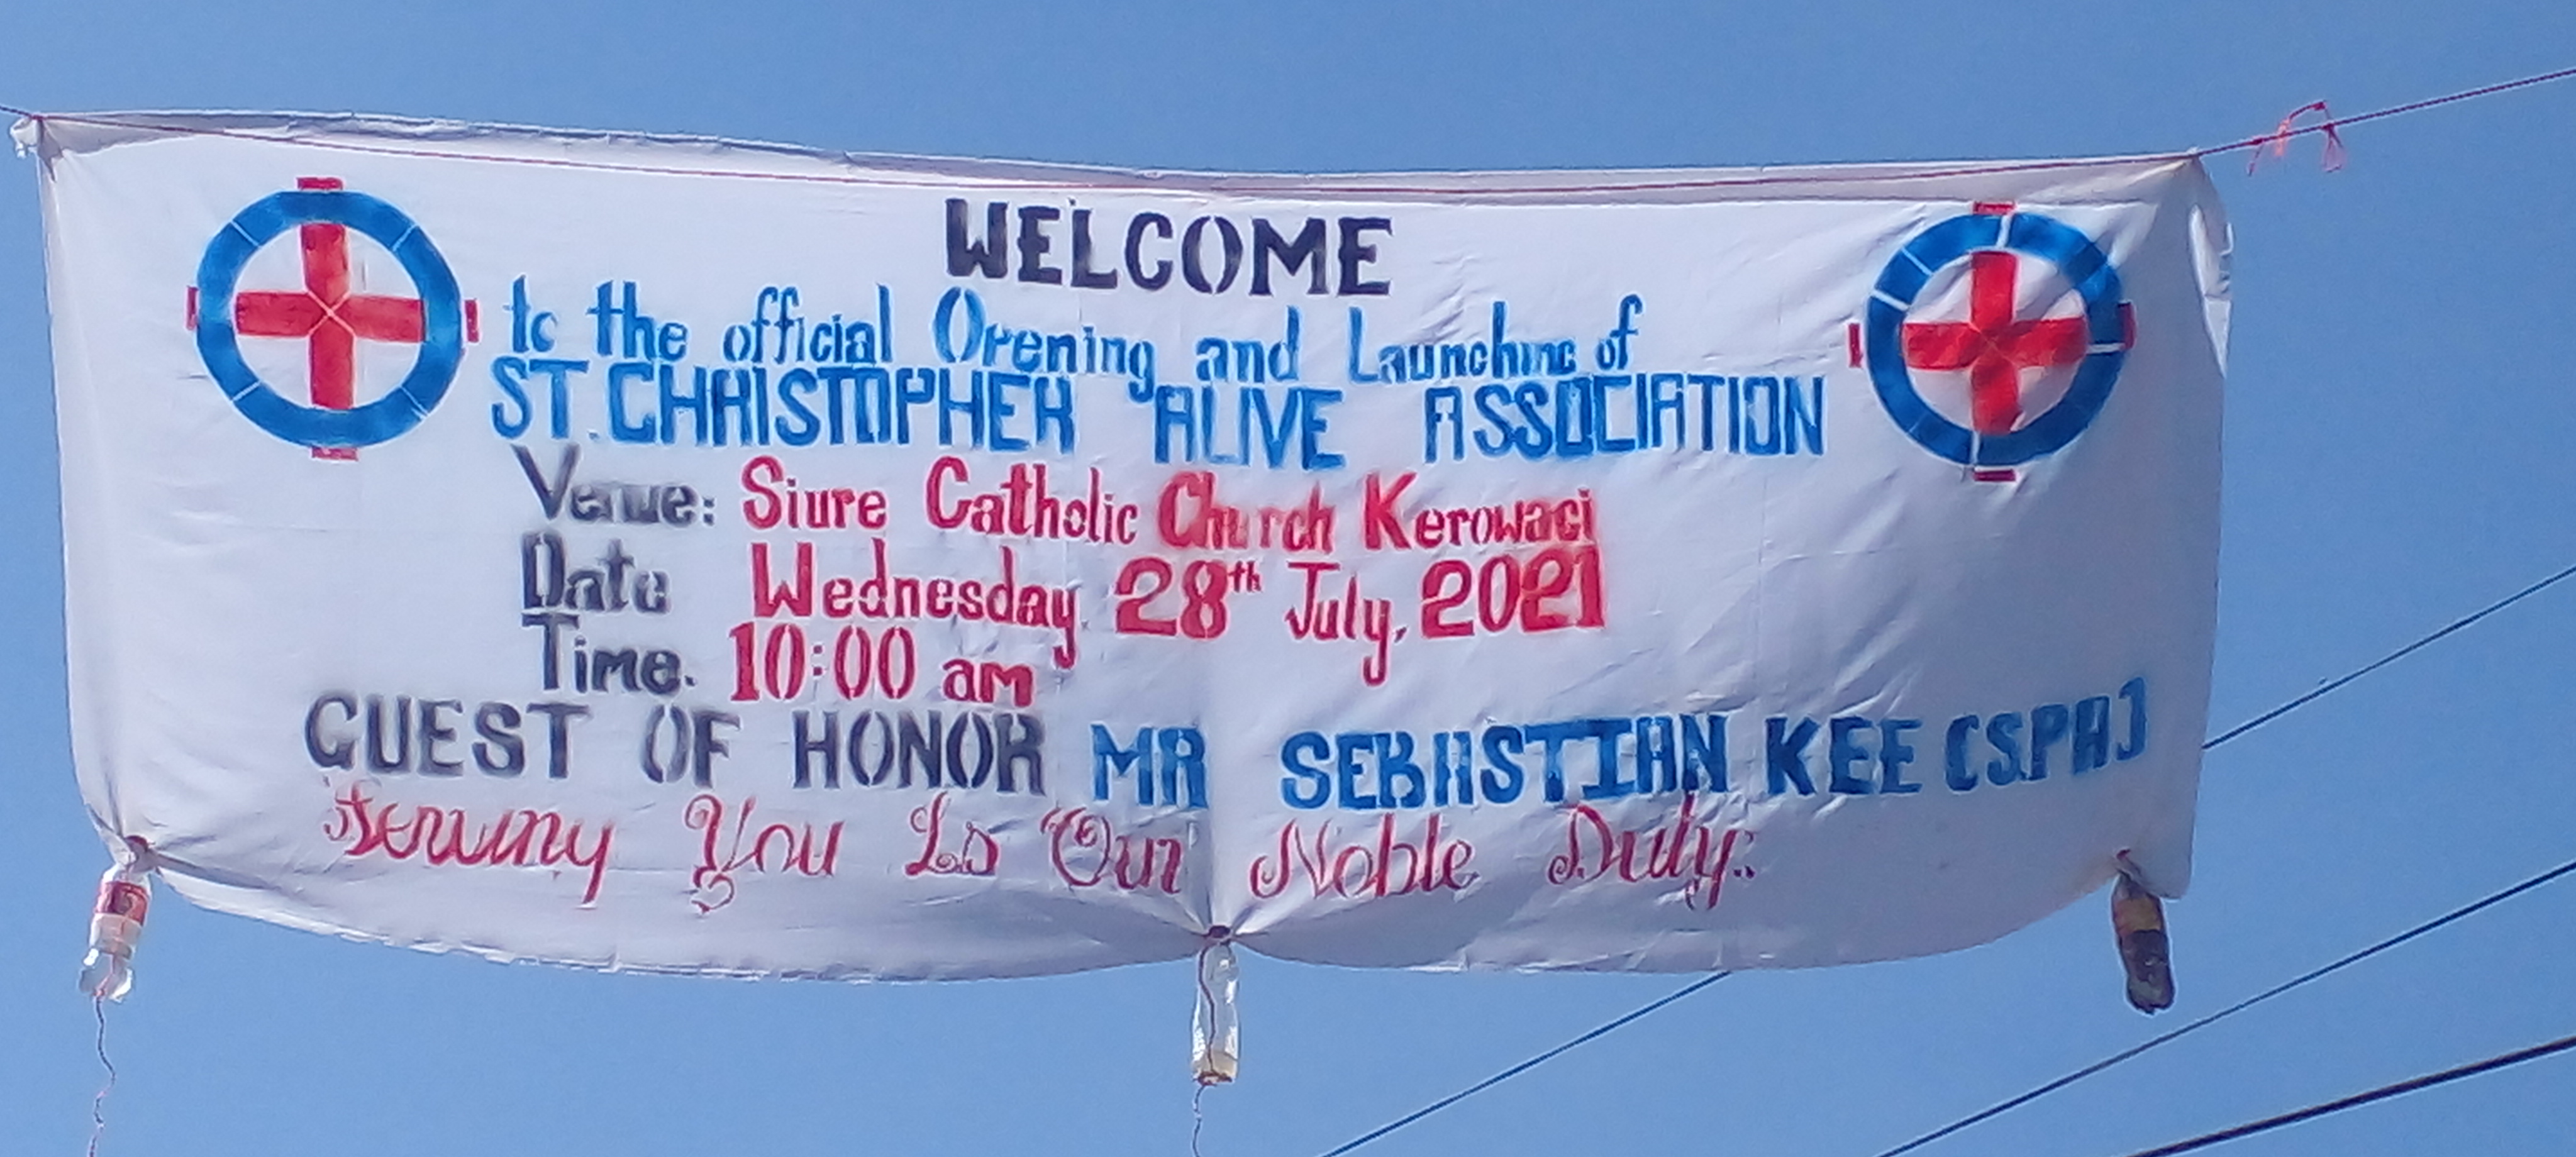 WELCOME
to the official Opening and Launching of
ST. CHRISTOPHER ALIVE ASSOCIATION
Venue: Siure Catholic Church Kerowagi
Date Wednesday 28th July, 2021
Time. 10:00 am
GUEST OF HONOR MR SEBASTIAN KEE (S.PA)
Serving You Is Our Noble Duty.